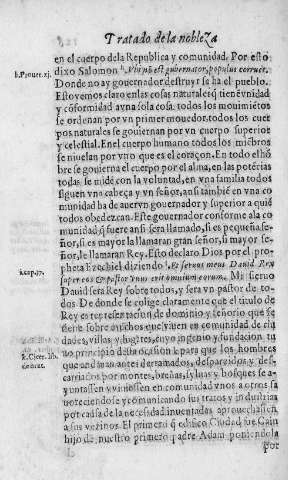 Tratado de la nobleza
en el cuerpo de la Republica y comunidad. Por esto
h. Prouer. xj.
dixo Salomon h. Vbi nō est gubernator, populus corruet.
Donde no ay gouernador destruyrse ha el pueblo.
Esto vemos claro en las cosas naturales q̃ tienē vnidad
y cōformidad a vna sola cosa: todos los mouimiētos
se ordenan por vn primer mouedor. todos los cuerpos
naturales se gouiernan por vn cuerpo superior
y celestial. En el cuerpo humano todos los miēbros
se mueuen por vno que es el coraçon. En todo el hōbre
se gouierna el cuerpo por el alma, en las potētias
todas se midē con la voluntad, en vna familia todos
siguen vna cabeça y vn señor, ansi tambiē en vna comunidad
ha de auer vn gouernador y superior a quiē
todos obedezcan. Este gouernador conforme a la comunidad
q̃ fuere ansi sera llamado, si es pequeña señor,
si es mayor la llamaran gran señor, si mayor señor,
le llamaran Rey. Esto declaro Dios por el propheta
i. cap. 37.
Ezechiel diziendo i, Et seruus meus Dauid Rex
super eos & pastor vnus erit omnium eorum. Mi sieruo
Dauid sera Rey sobre todos, y sera vn pastor de todos.
De donde se colige claramente que el titulo de
Rey es representacion de dominio y señorio que se
tiene sobre muchos que viuen en comunidad de ciudades,
villas, y lugares, cuyo ingenio y fundacion tuuo
k. Cicer. lib.
principio de la ocasion k para que los hombres
que andauan antes derramados, desparzidos y descarriados
por montes, breñas, syluas y bosques se ayuntassen
y viuiessen en comunidad vnos a otros fauoreciendose
y comunicando sus tratos y industrias
por causa de la necesidad inuentadas aprouechassen
a sus vezinos. El primero q̃ edifico Ciudad fue Cain
hijo de nuestro primero padre Adam poniendola
por